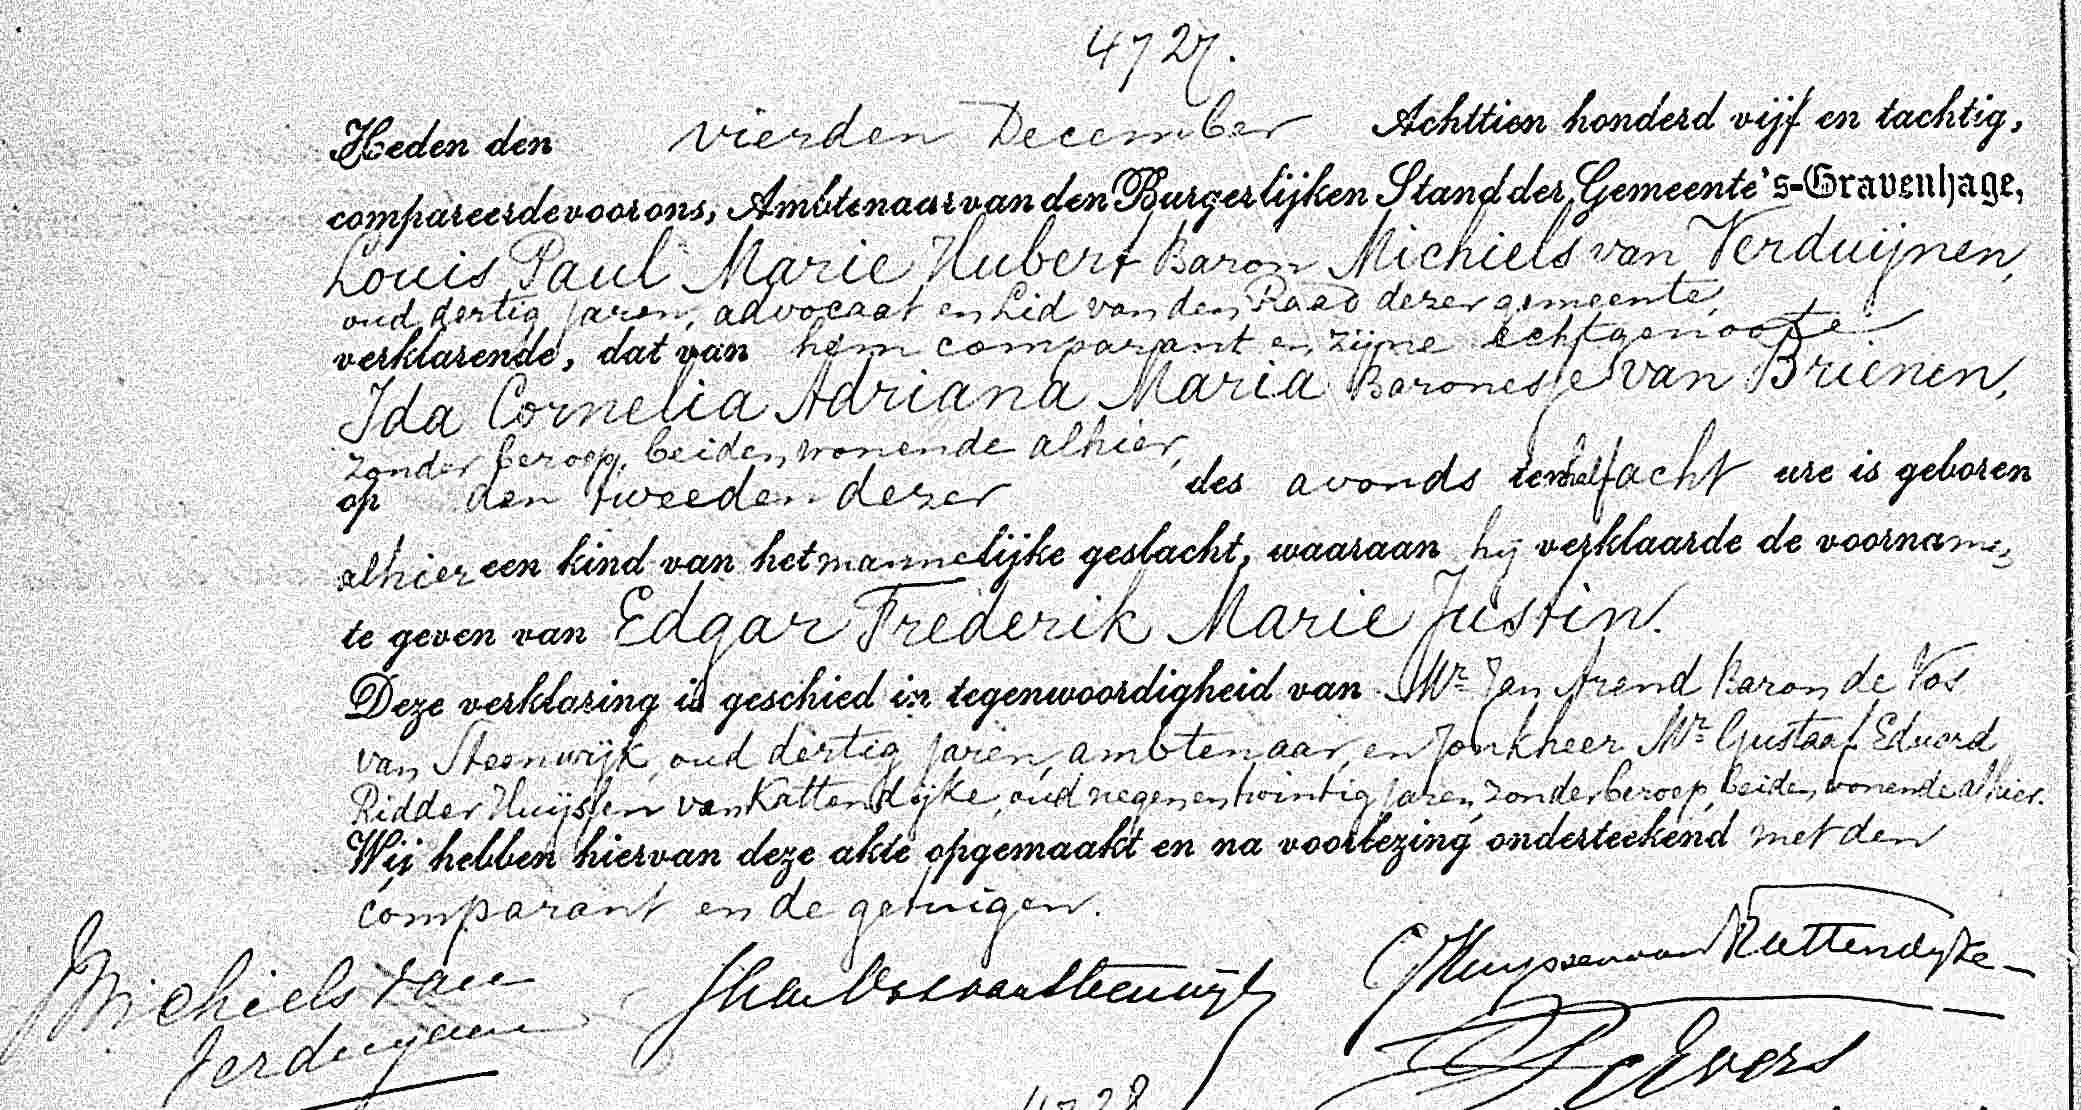 4727.
Heden den vierden December Achttien honderd vijf en tachtig,
compareerde voor ons, Ambtenaar van den Burgerlijken Stand der Gemeente 's-Gravenhage,
Louis Paul Marie Hubert Baron Michiels van Verduijnen,
oud dertig jaren, advocaat en Lid van den Raad dezer gemeente,
verklarende, dat van hem comparant en zijne echtgenoote
Ida Cornelia Adriana Maria Baronesse van Brienen,
zonder beroep, beiden wonende alhier,
op den tweeden dezer des avonds ten half acht ure is geboren
alhier een kind van het mannelijke geslacht, waaraan hij verklaarde de voornamen
te geven van Edgar Frederik Marie Justin.
Deze verklaring is geschied in tegenwoordigheid van Mr. Jan Arend Baron de Vos
van Steenwijk, oud dertig jaren, ambtenaar, en Jonkheer Mr. Gustaaf Eduard
Ridder Huijssen van Kattendijke, oud negen en twintig jaren, zonder beroep, beiden wonende alhier.
Wij hebben hiervan deze akte opgemaakt en na voorlezing onderteekend met den
comparant en de getuigen.
Michiels van
Verduynen
de Vos van Steenwijk
Huyssen van Kattendyke
Evers
4728